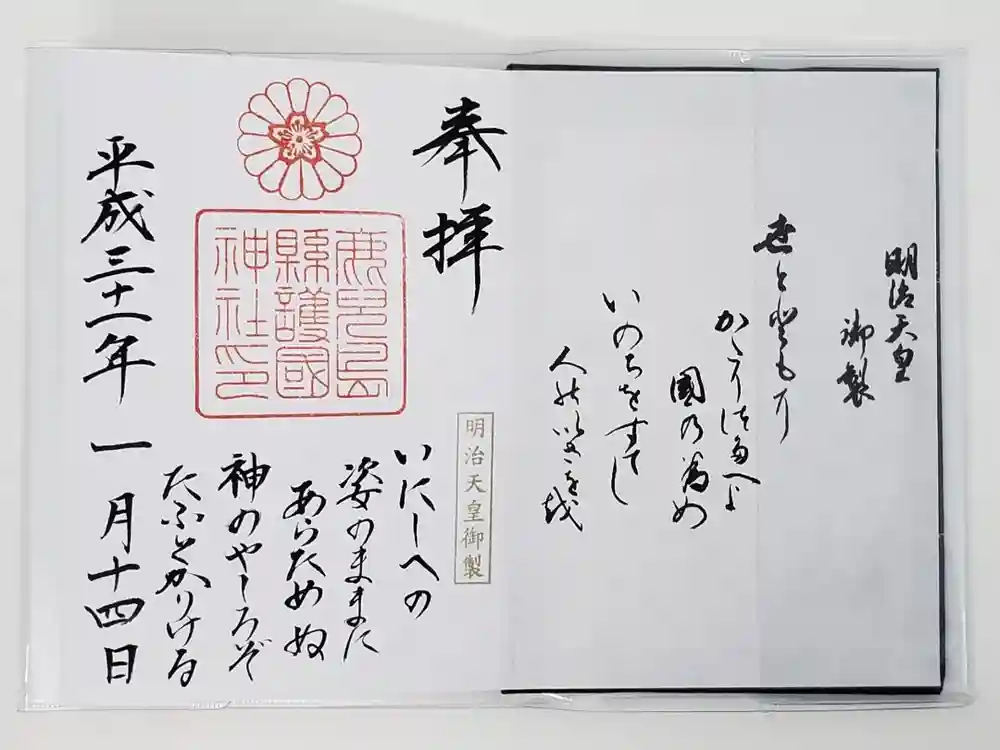 明治天皇
御製
世と登もに
かたり徒多へよ
國乃為め
いのちをすてし
人能いさを越
奉拝
鹿兒島
縣護國
神社印
明治天皇御製
いにしへの
姿のままに
あらためぬ
神のやしろぞ
たふとかりける
平成三十一年一月十四日